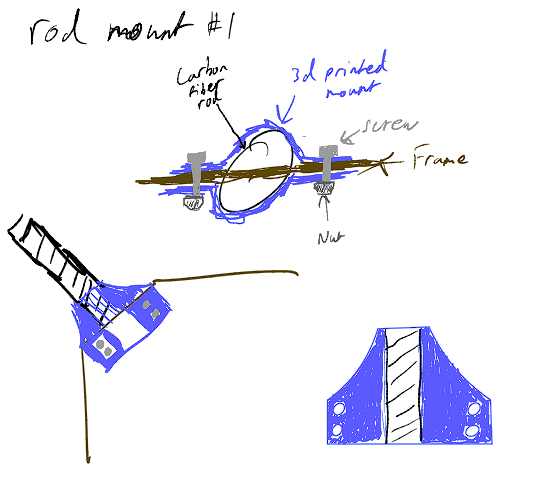 rod mount #1
Carbon
fiber
rod
3d printed
mount
screw
Frame
Nut